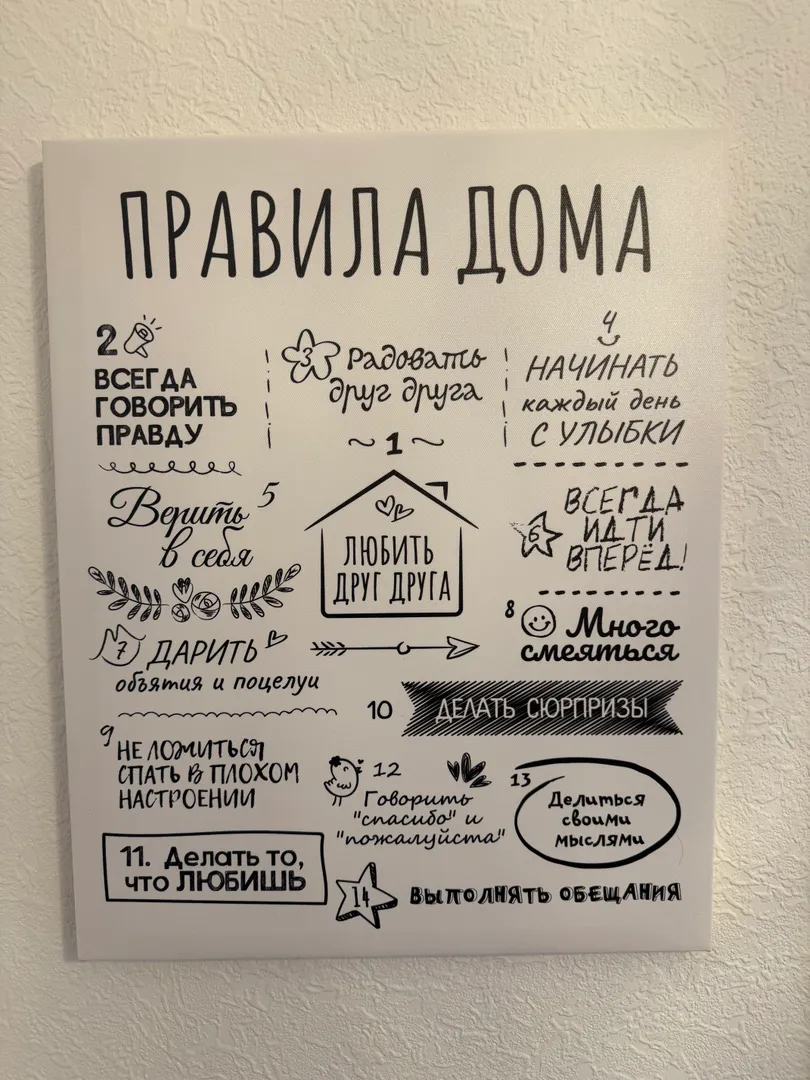 ПРАВИЛА ДОМА
2
ВСЕГДА
ГОВОРИТЬ
ПРАВДУ
3 Радовать
друг друга
4
НАЧИНАТЬ
каждый день
С УЛЫБКИ
~1~
ЛЮБИТЬ
ДРУГ ДРУГА
Верить 5
в себя
6
ВСЕГДА
ИДТИ
ВПЕРЁД!
7 ДАРИТЬ
объятия и поцелуи
8 Много
смеяться
9
НЕ ЛОЖИТЬСЯ
СПАТЬ В ПЛОХОМ
НАСТРОЕНИИ
10 ДЕЛАТЬ СЮРПРИЗЫ
11. Делать то,
что ЛЮБИШЬ
12
Говорить
"спасибо" и
"пожалуйста"
13
Делиться
своими
мыслями
14 ВЫПОЛНЯТЬ ОБЕЩАНИЯ